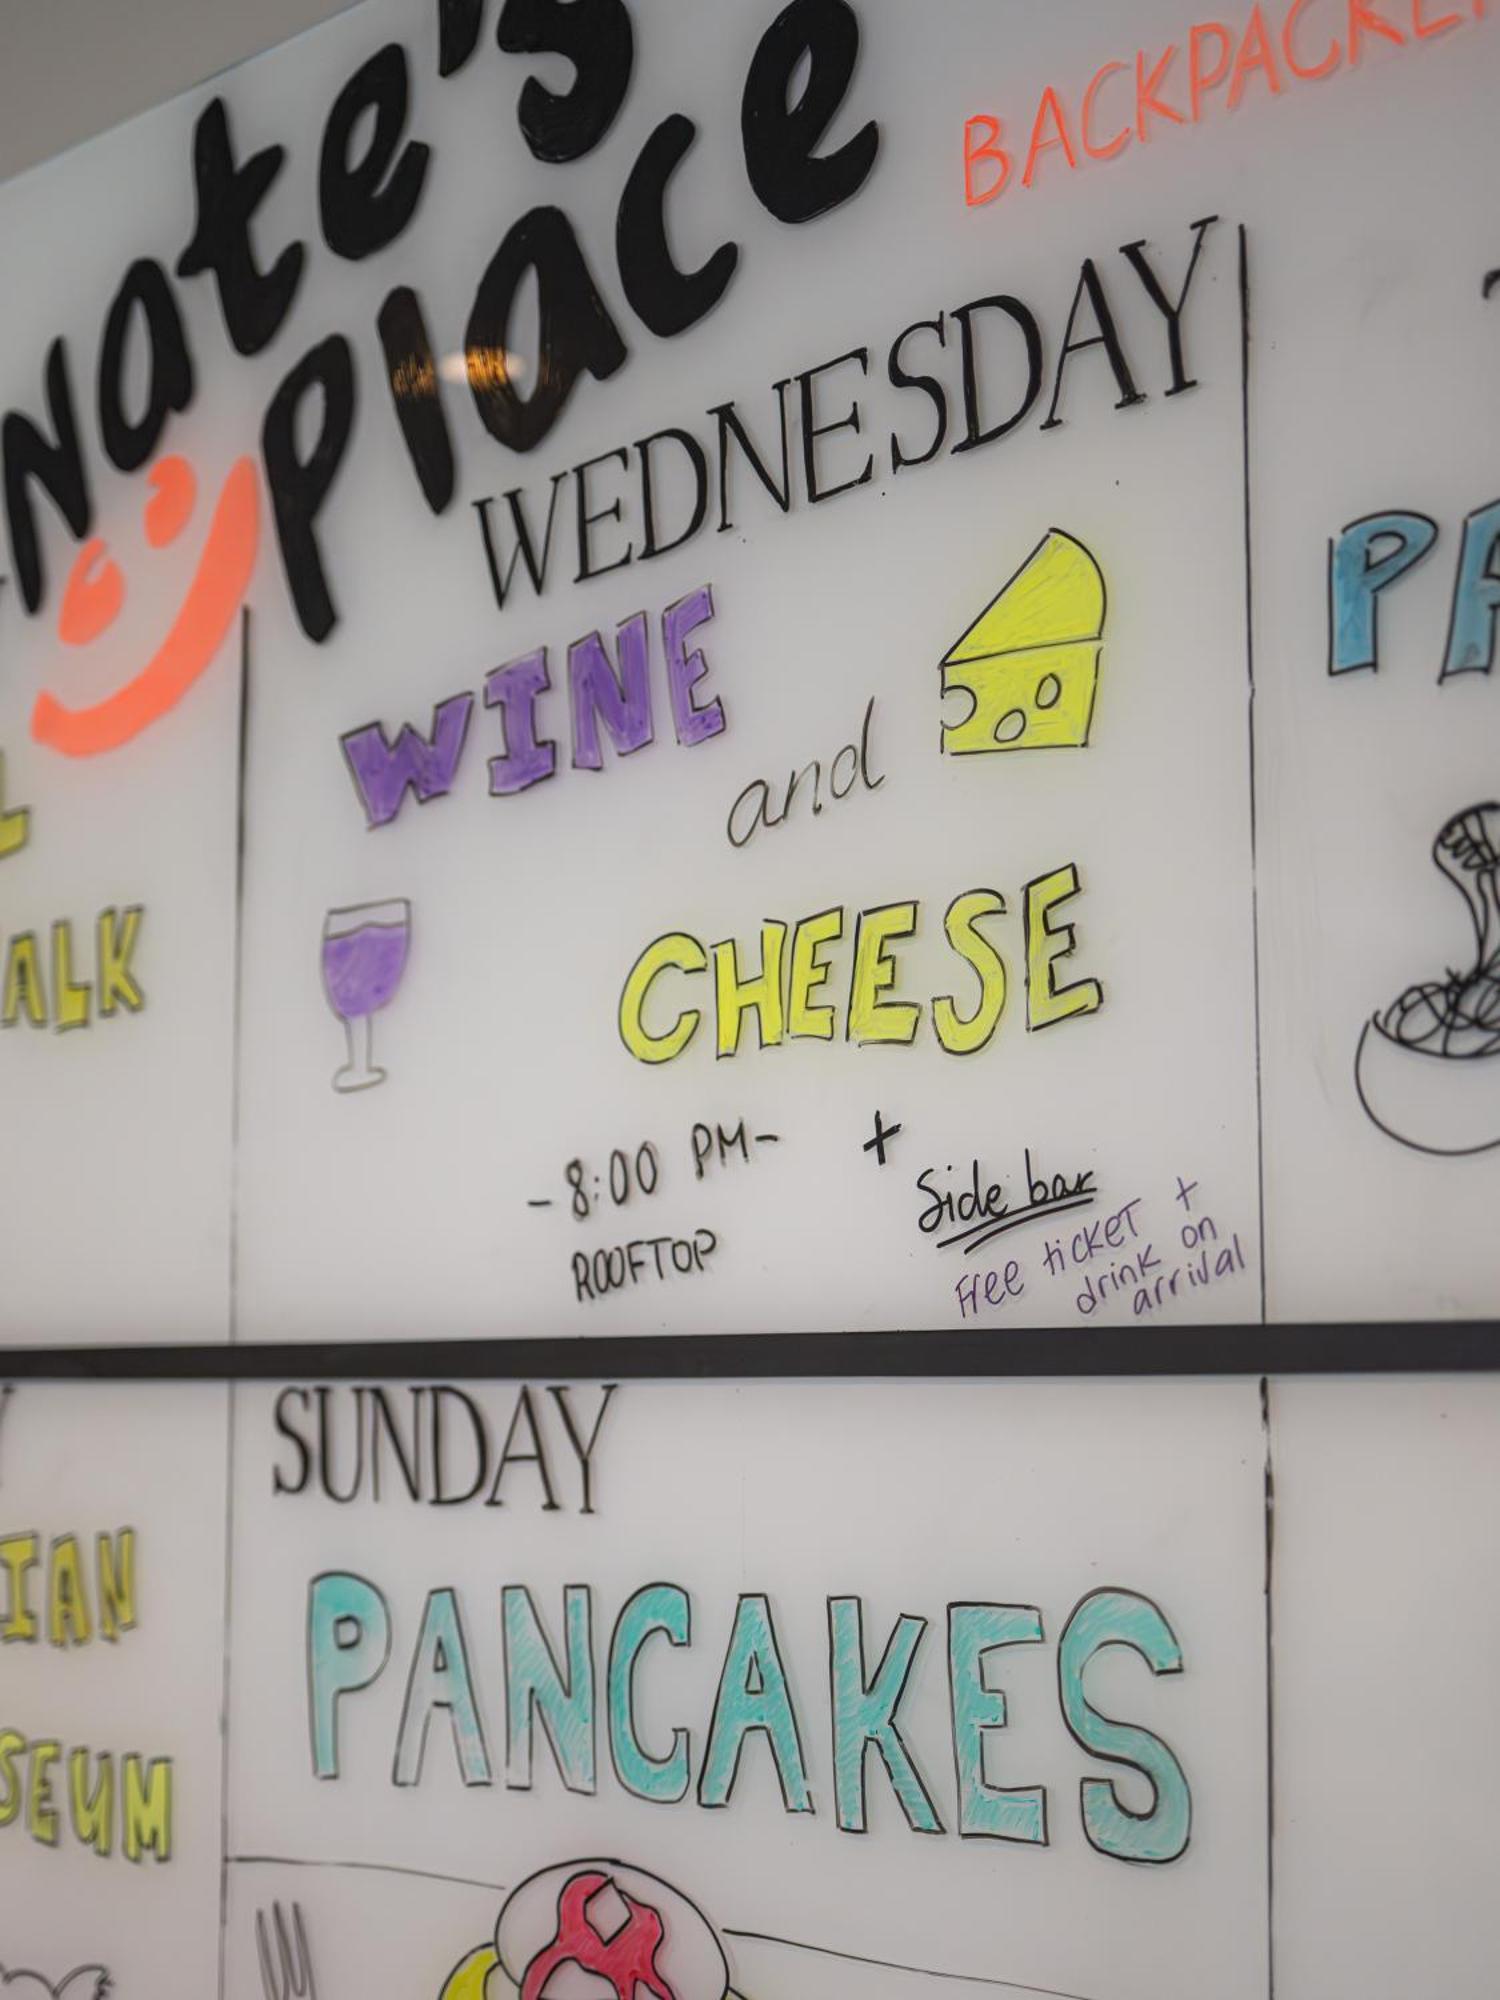 Nate's
Place
BACKPACKE
WEDNESDAY
WINE
and
CHEESE
-8:00 PM-
ROOFTOP
+
Side bar
Free ticket +
drink on
arrival
PA
L
ALK
SUNDAY
PANCAKES
Y
IAN
SEUM